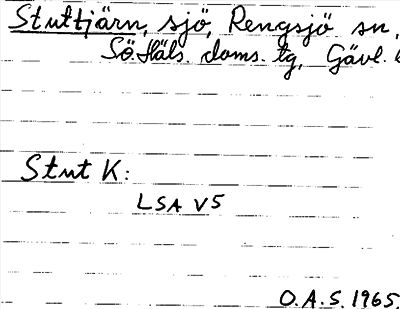 Stuttjärn, sjö, Rengsjö sn,
Sö. Häls. doms. tg, Gävl.
Stut K:
LSA V5
O.A.S. 1965.